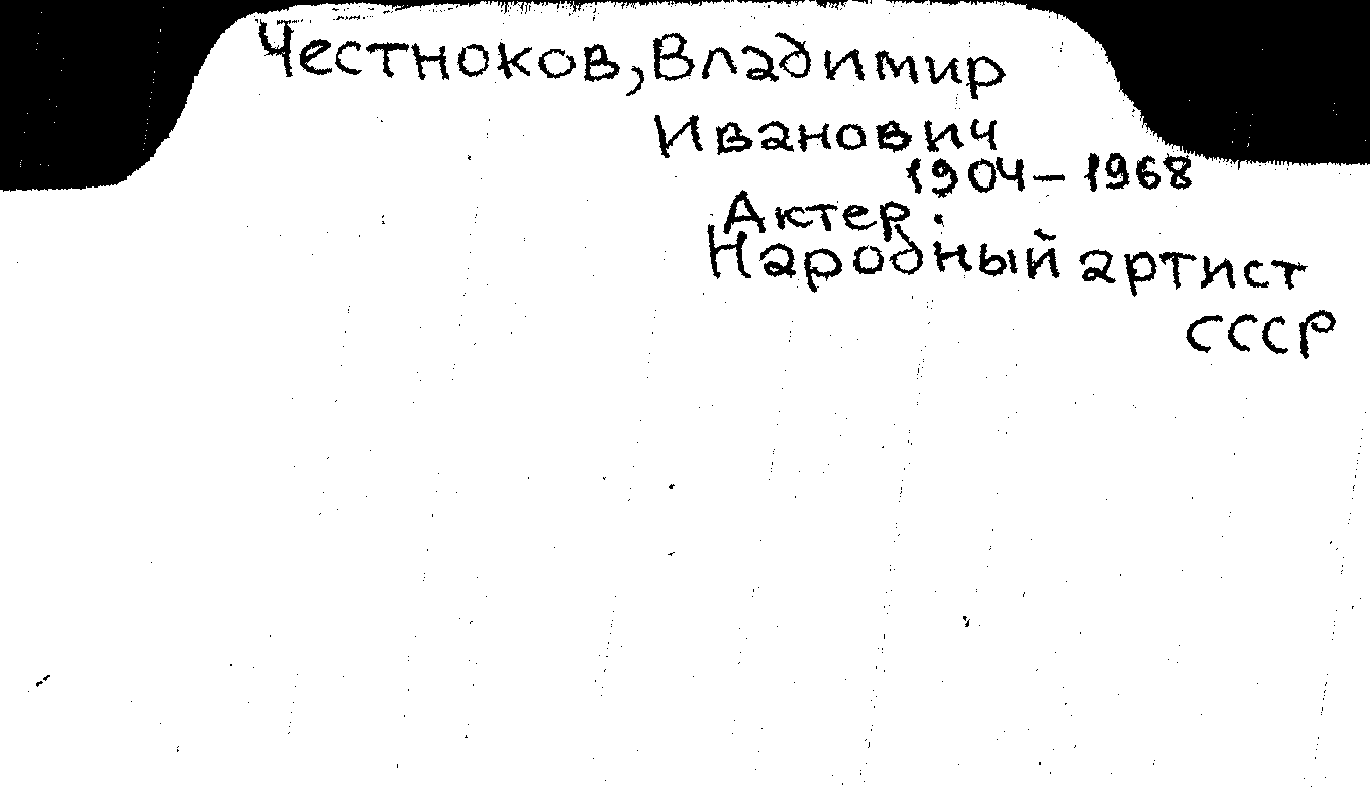 Честноков, Владимир
Иванович
1904 – 1968
Актер.
Народный артист
СССР